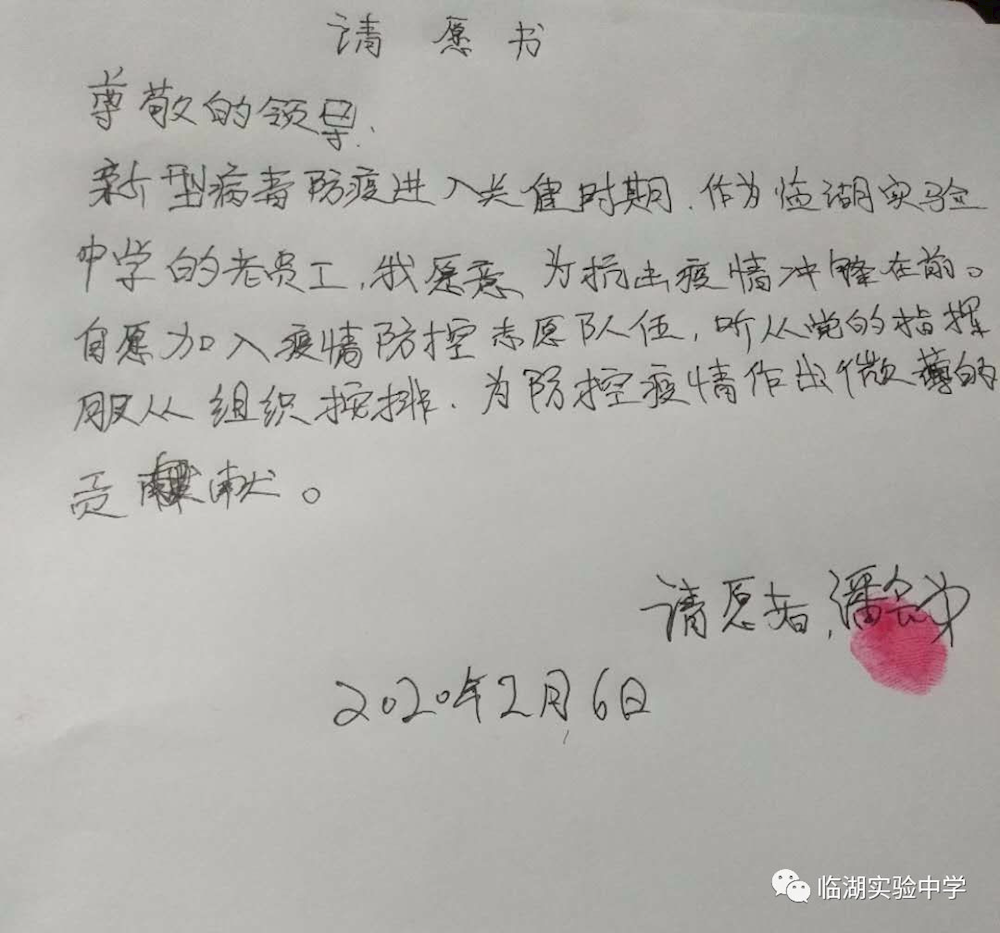 请愿书
尊敬的领导.
新型病毒防疫进入关健时期.作为临湖实验
中学的老员工,我愿意为抗击疫情冲锋在前。
自愿加入疫情防控志愿队伍,听从党的指挥
服从组织按排.为防控疫情作出微薄的
贡献。
请愿者,潘
2020年2月6日
临湖实验中学